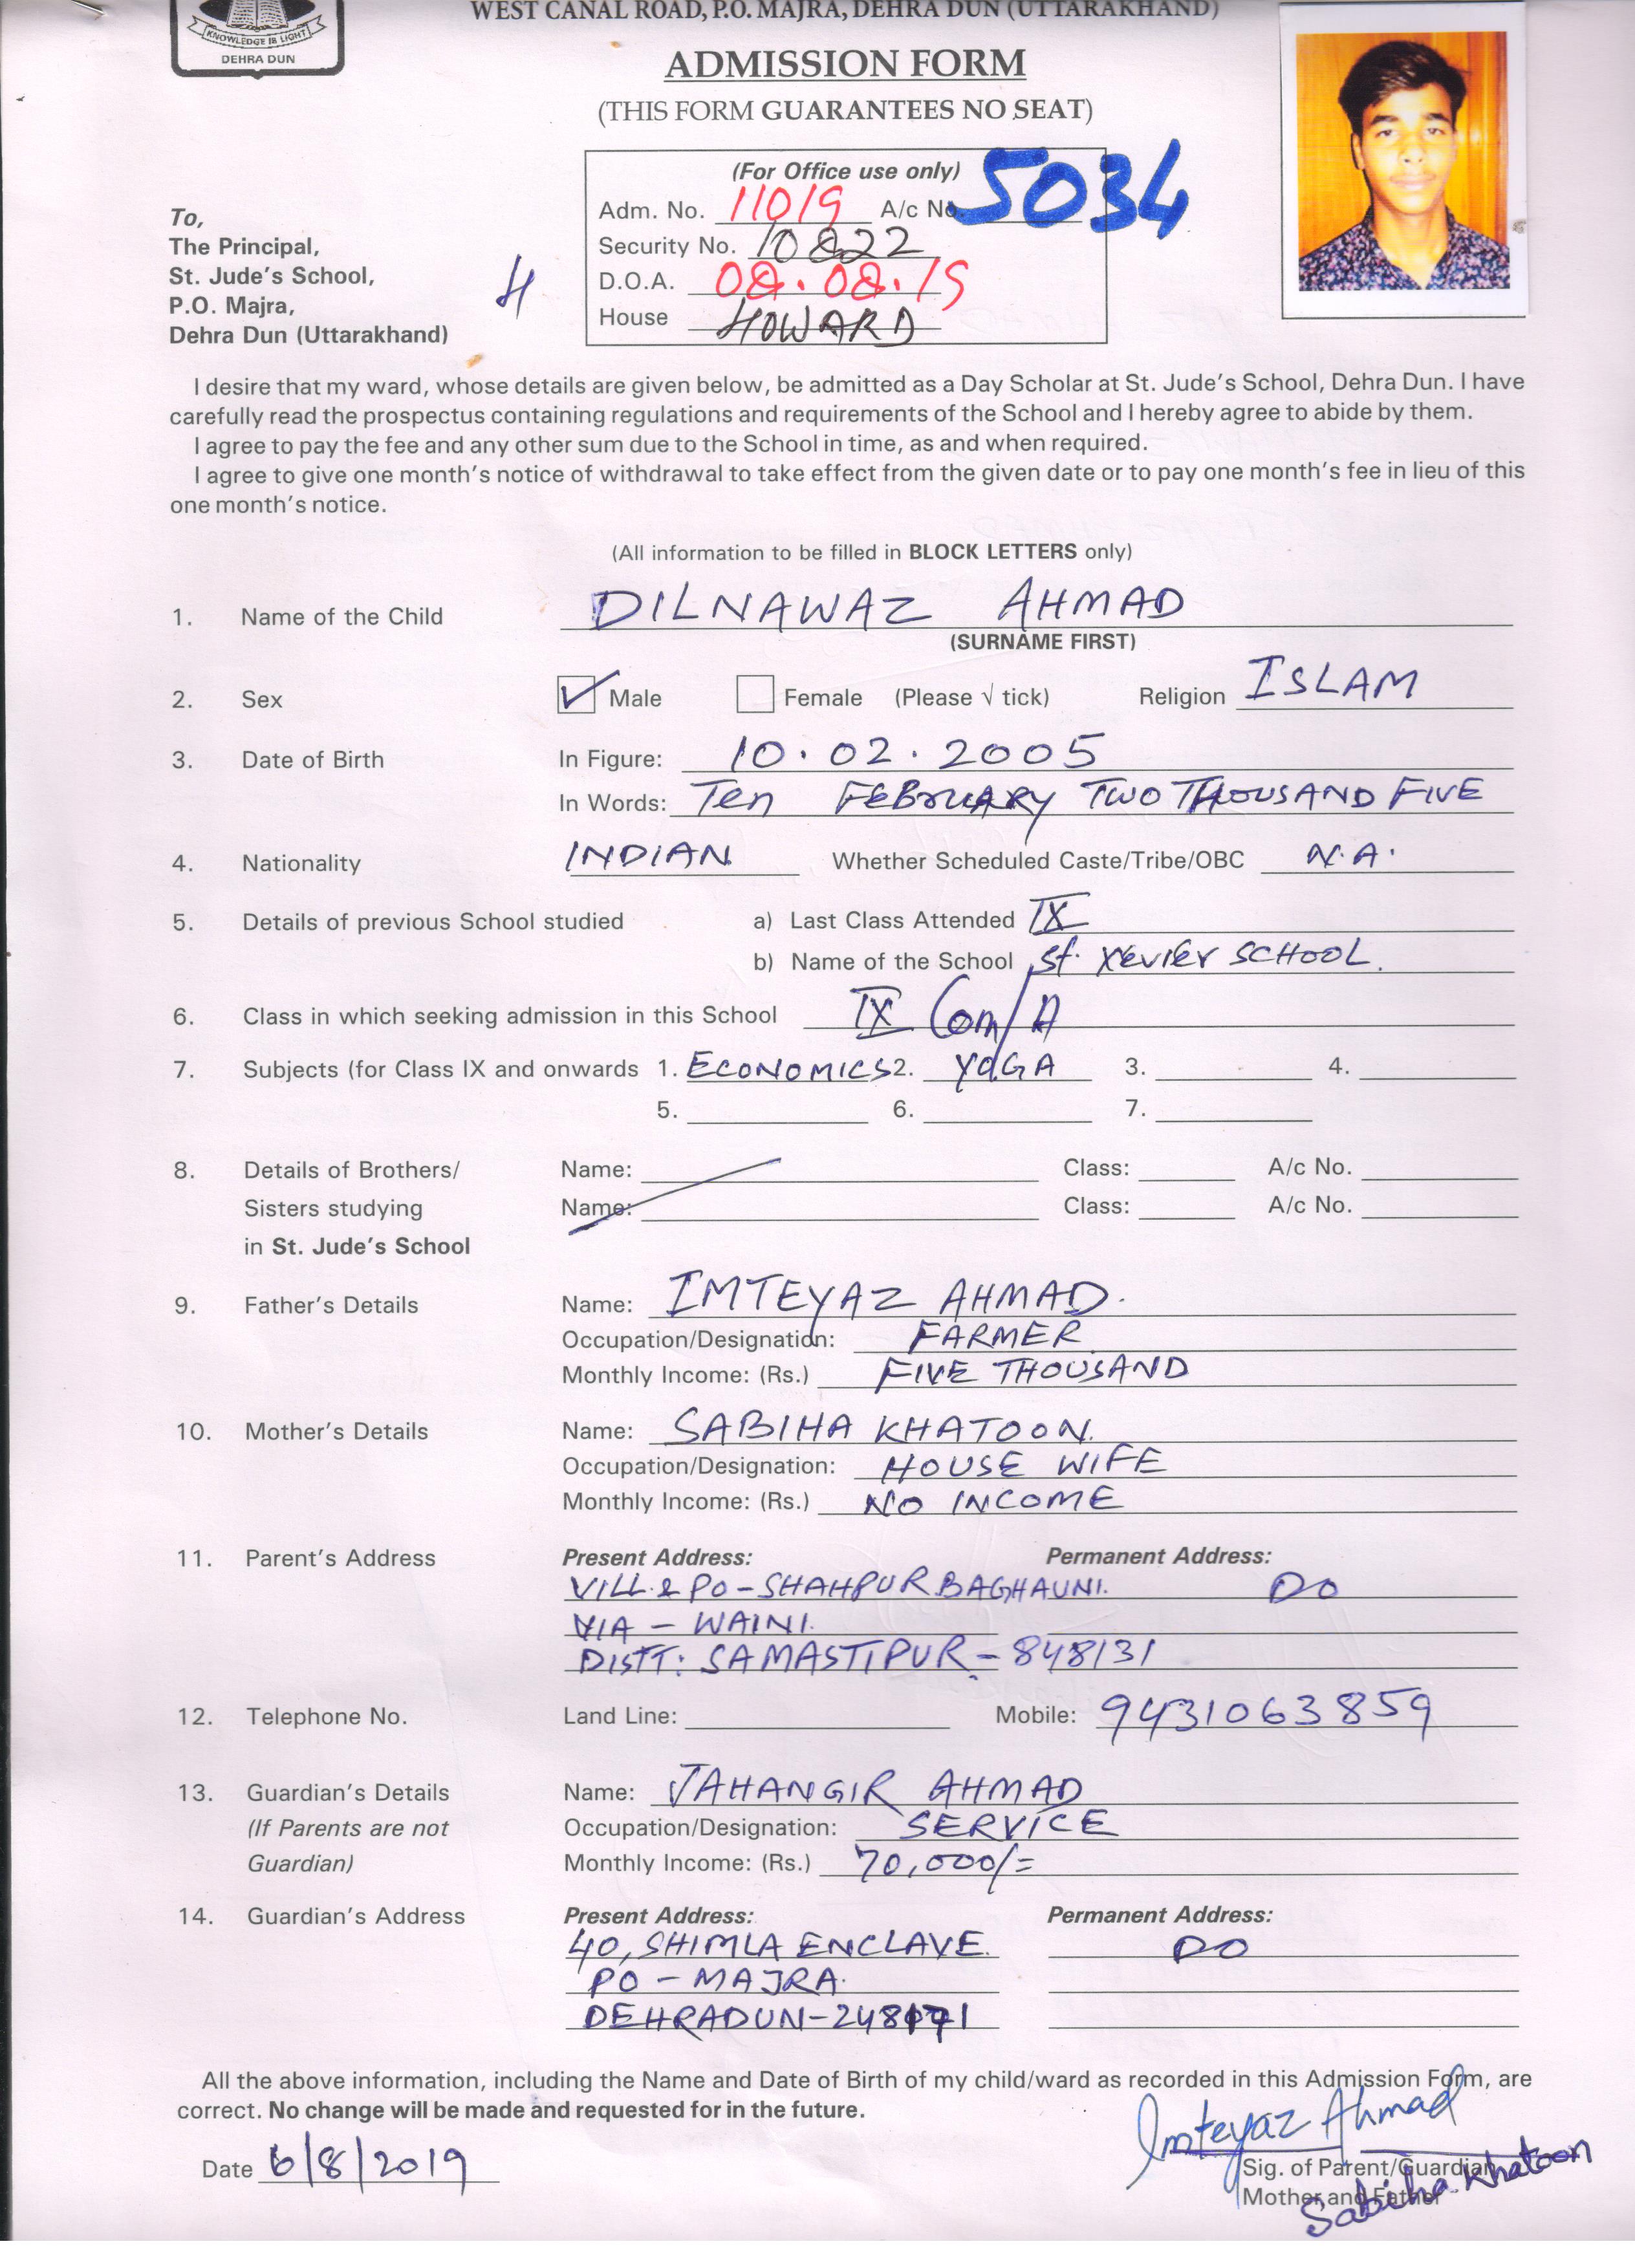 WEST CANAL ROAD, P.O. MAJRA, DEHRA DUN (UTTARAKHAND)
KNOWLEDGE IS LIGHT
DEHRA DUN
ADMISSION FORM
(THIS FORM GUARANTEES NO SEAT)
(For Office use only)
Adm. No. 11019 A/c No. 5034
Security No. 10822
D.O.A. 08.08.19
House HOWARD
To,
The Principal,
St. Jude's School,
P.O. Majra,
Dehra Dun (Uttarakhand)
H
I desire that my ward, whose details are given below, be admitted as a Day Scholar at St. Jude's School, Dehra Dun. I have
carefully read the prospectus containing regulations and requirements of the School and I hereby agree to abide by them.
I agree to pay the fee and any other sum due to the School in time, as and when required.
I agree to give one month's notice of withdrawal to take effect from the given date or to pay one month's fee in lieu of this
one month's notice.
(All information to be filled in BLOCK LETTERS only)
1. Name of the Child DILNAWAZ AHMAD
(SURNAME FIRST)
2. Sex Male Female (Please √ tick) Religion ISLAM
3. Date of Birth In Figure: 10.02.2005
In Words: Ten FEBRUARY TWO THOUSAND FIVE
4. Nationality INDIAN Whether Scheduled Caste/Tribe/OBC N.A.
5. Details of previous School studied a) Last Class Attended IX
b) Name of the School St. Xevier SCHOOL.
6. Class in which seeking admission in this School IX Com/A
7. Subjects (for Class IX and onwards 1. ECONOMICS 2. YOGA 3. 4.
5. 6. 7.
8. Details of Brothers/ Name: Class: A/c No.
Sisters studying Name: Class: A/c No.
in St. Jude's School
9. Father's Details Name: IMTEYAZ AHMAD.
Occupation/Designation: FARMER
Monthly Income: (Rs.) FIVE THOUSAND
10. Mother's Details Name: SABIHA KHATOON.
Occupation/Designation: HOUSE WIFE
Monthly Income: (Rs.) NO INCOME
11. Parent's Address Present Address: Permanent Address:
VILL & PO - SHAHPUR BAGHAUNI. DO
VIA - WAINI.
DISTT: SAMASTIPUR - 848131
12. Telephone No. Land Line: Mobile: 9431063859
13. Guardian's Details Name: JAHANGIR AHMAD
(If Parents are not Occupation/Designation: SERVICE
Guardian) Monthly Income: (Rs.) 70,000/=
14. Guardian's Address Present Address: Permanent Address:
40, SHIMLA ENCLAVE. DO
PO - MAJRA.
DEHRADUN-248171
All the above information, including the Name and Date of Birth of my child/ward as recorded in this Admission Form, are
correct. No change will be made and requested for in the future.
Imteyaz Ahmad
Date 6/8/2019
Sig. of Parent/Guardian
Mother and Father
Sabiha Khatoon